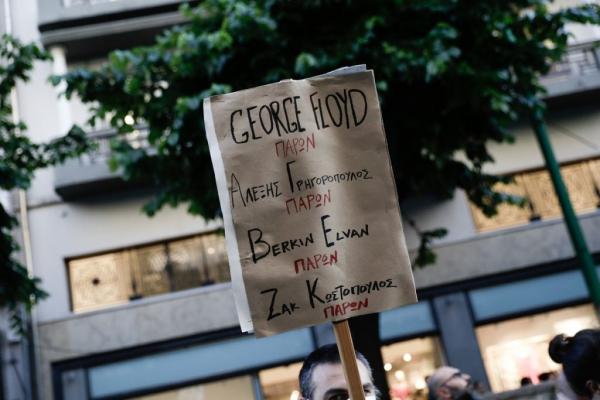 GEORGE FLOYD
ΠΑΡΩΝ
ΑΛΕΞΗΣ ΓΡΗΓΟΡΟΠΟΥΛΟΣ
ΠΑΡΩΝ
BERKIN ELVAN
ΠΑΡΩΝ
ΖΑΚ ΚΩΣΤΟΠΟΥΛΟΣ
ΠΑΡΩΝ